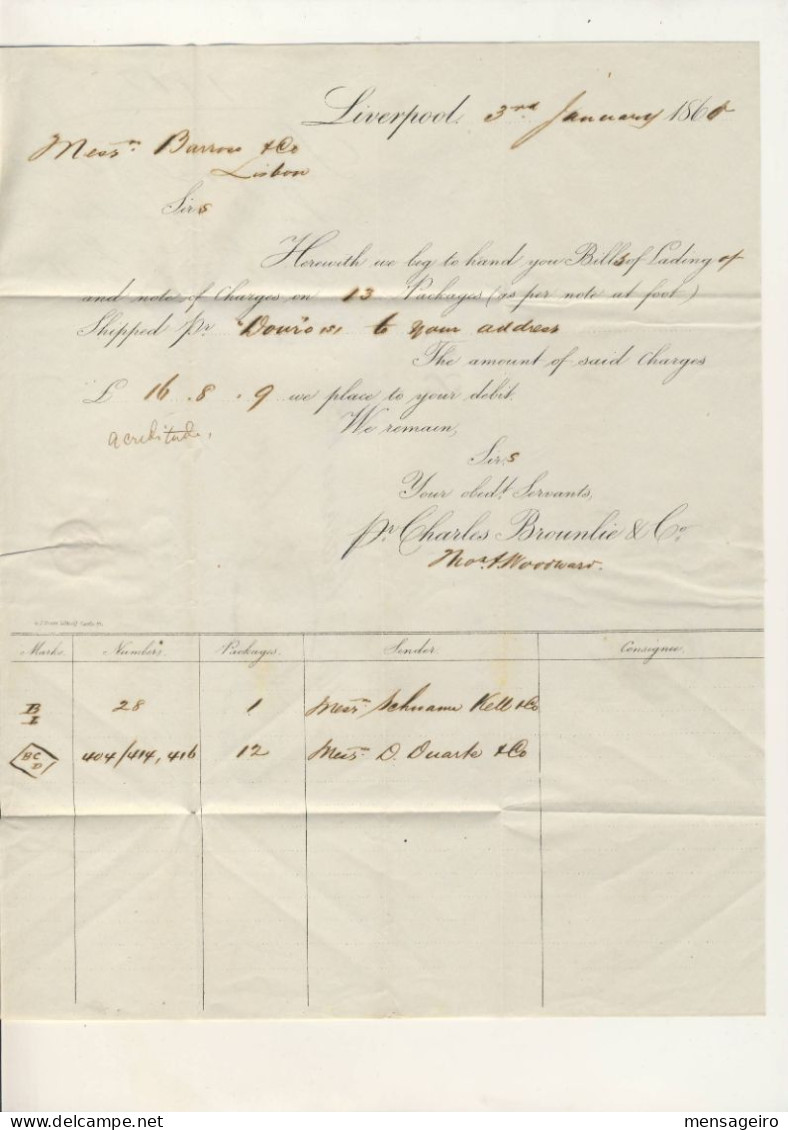 Liverpool, 3rd January 1860
Messrs Barrow & Co
Lisbon
Sirs
Herewith we beg to hand you Bills of Lading of
and note of Charges on 13 Packages (as per note at foot)
Shipped pr Douro to your address
The amount of said Charges
£ 16.8.9 we place to your debit.
We remain,
acreditado,
Sirs
Your obedt. Servants,
pr. Charles Brownlie & Co.
Thos. Woodward.
Marks. Numbers. Packages. Sender. Consignee.
B/L 28 1 Messrs Kell & Co
BC/D 404/414, 416 12 Messrs D. Duarte & Co
mensageiro